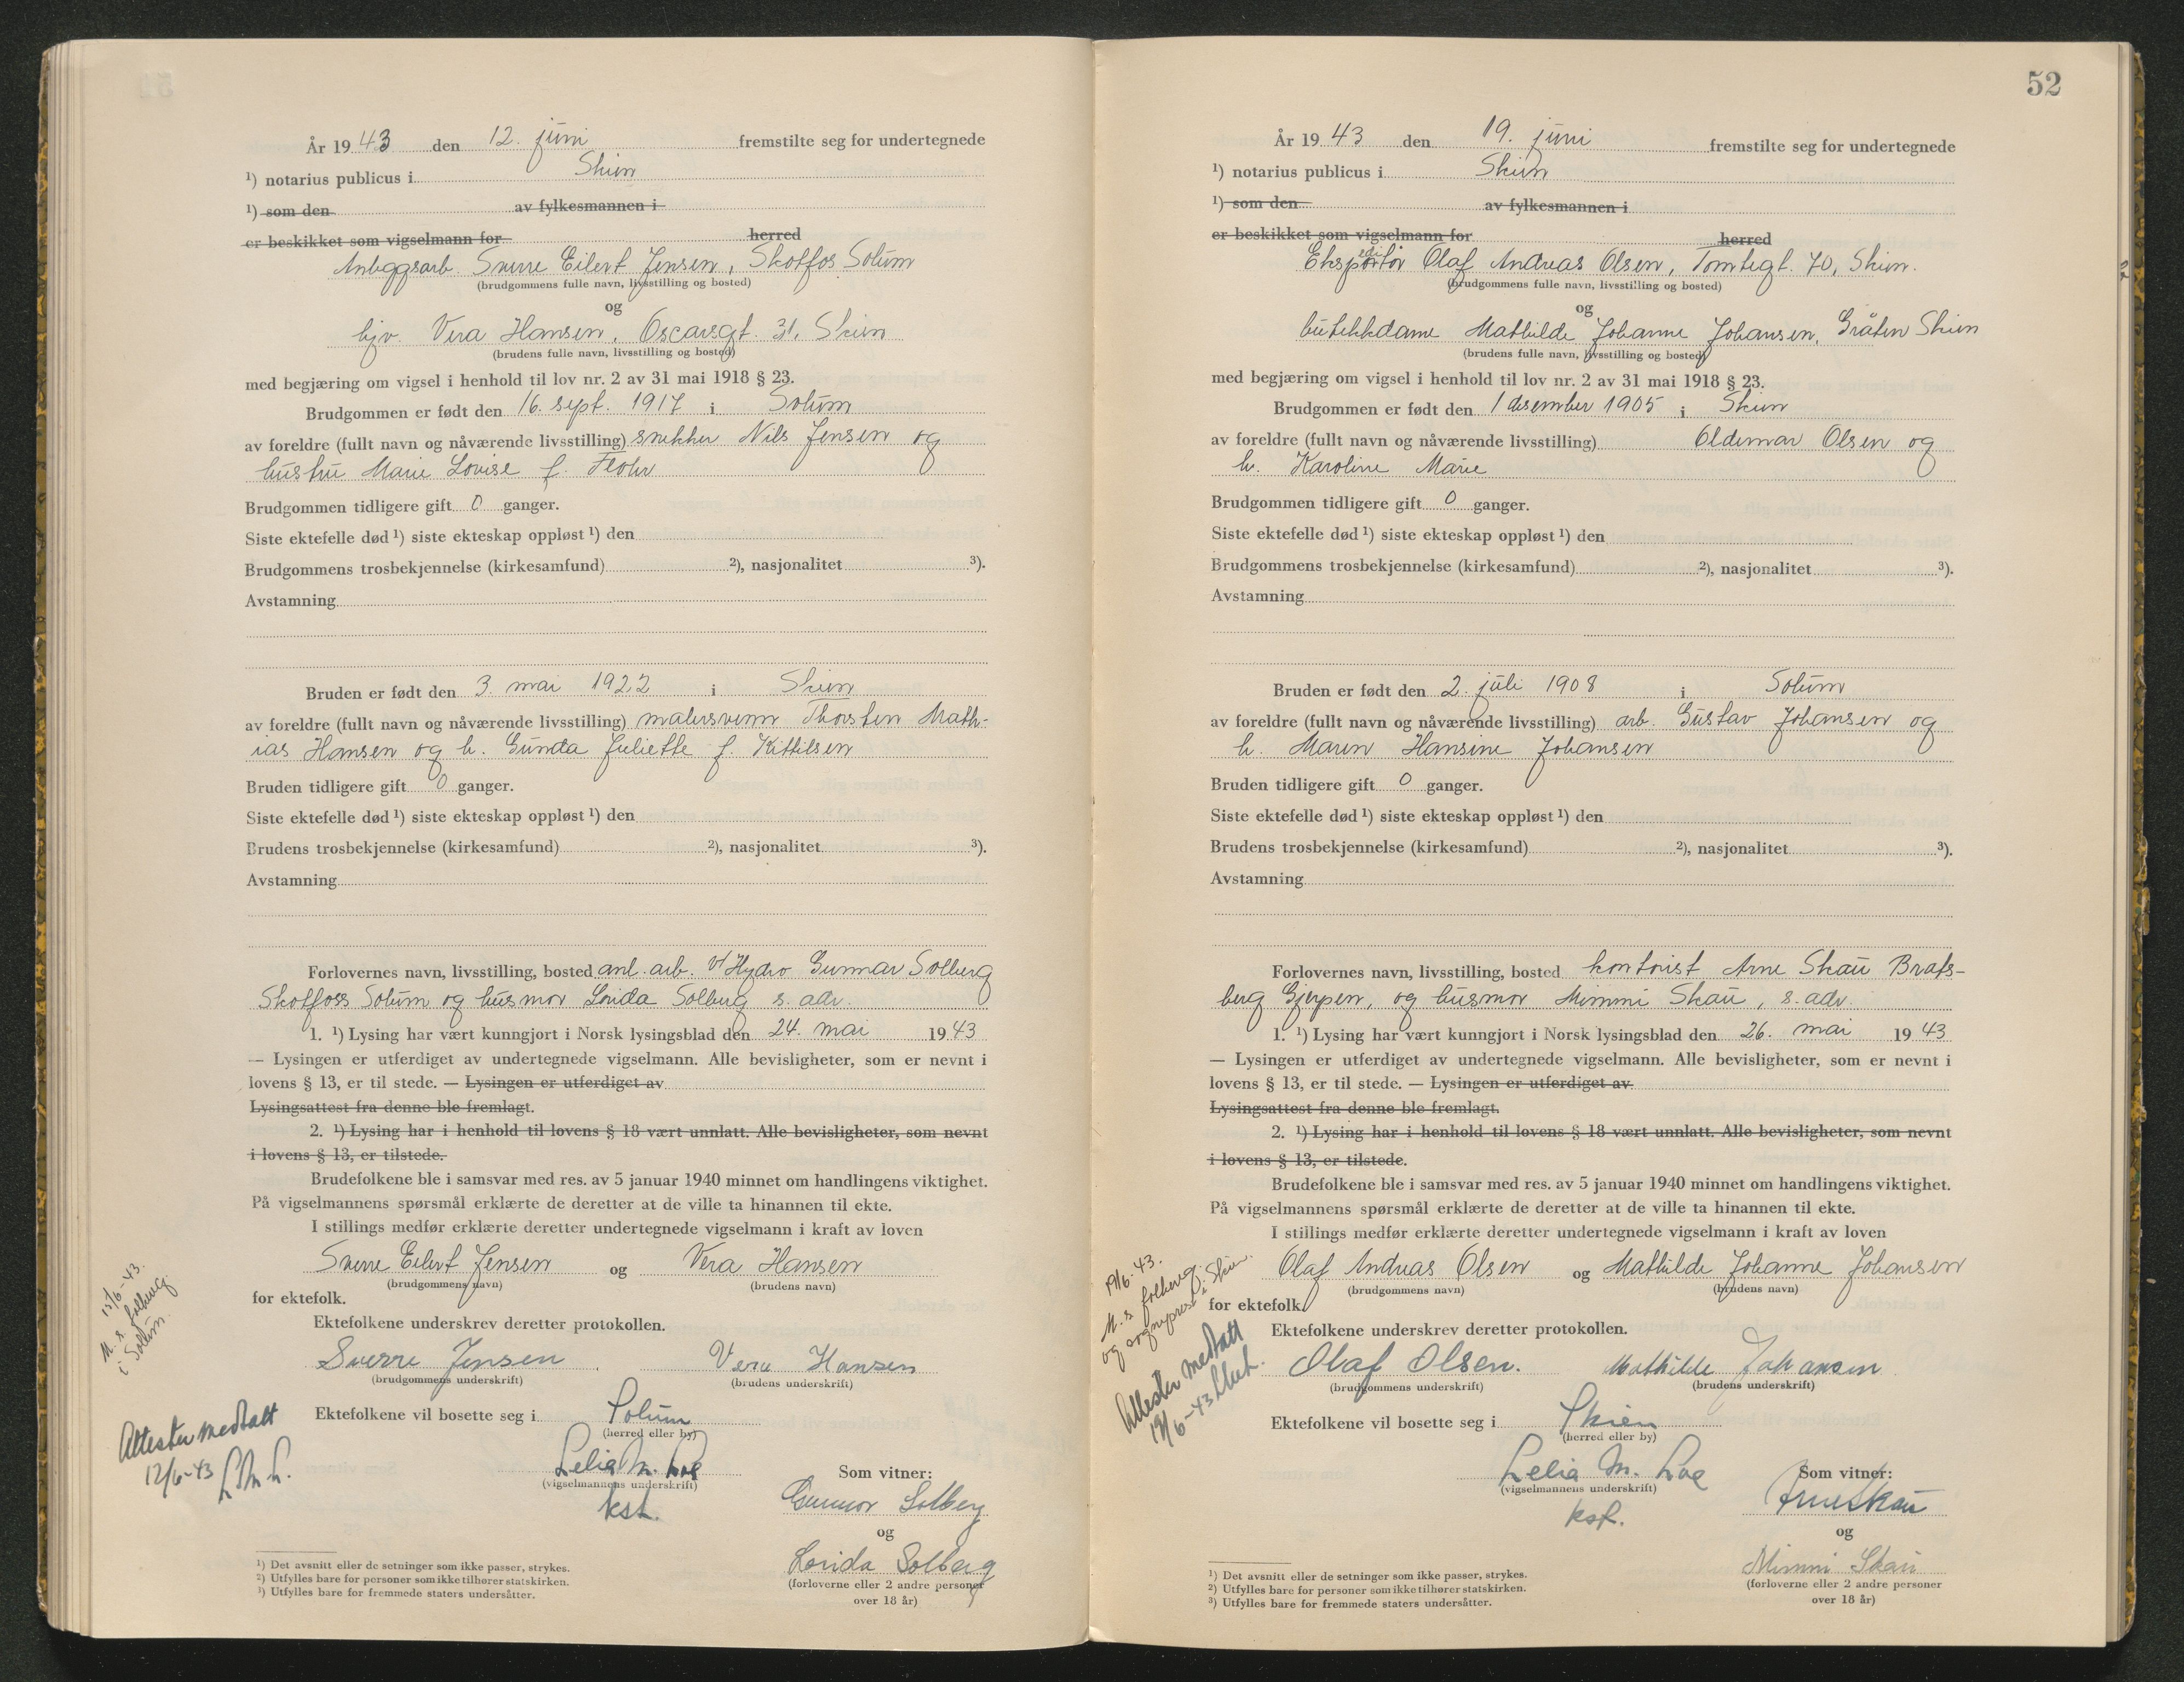 År 1943 den 12. juni fremstilte seg for undertegnede
¹) notarius publicus i Skien
¹) som den av fylkesmannen i
er beskikket som vigselmann for herred
Anleggsarb. Sverre Eilert Jensen, Skotfos Solum
(brudgommens fulle navn, livsstilling og bosted)
og
hjv. Vera Hansen, Oscarsgt. 31, Skien
(brudens fulle navn, livsstilling og bosted)
med begjæring om vigsel i henhold til lov nr. 2 av 31 mai 1918 § 23.
Brudgommen er født den 16. sept. 1917 i Solum
av foreldre (fullt navn og nåværende livsstilling) snekker Nils Jensen og
hustru Marie Lovise f. Flohr
Brudgommen tidligere gift 0 ganger.
Siste ektefelle død ¹) siste ekteskap oppløst ¹) den
Brudgommens trosbekjennelse (kirkesamfund) ²), nasjonalitet ³).
Avstamning
Bruden er født den 3. mai 1922 i Skien
av foreldre (fullt navn og nåværende livsstilling) malersvenn Thorsten Math-
ias Hansen og h. Gunda Juliette f. Kittilsen
Bruden tidligere gift 0 ganger.
Siste ektefelle død ¹) siste ekteskap oppløst ¹) den
Brudens trosbekjennelse (kirkesamfund) ²), nasjonalitet ³).
Avstamning
Forlovernes navn, livsstilling, bosted anl. arb. v/Hydro Gunnar Solberg
Skotfoss Solum og husmor Lovida Solberg s. adr.
1. ¹) Lysing har vært kunngjort i Norsk lysingsblad den 24. mai 1943
— Lysingen er utferdiget av undertegnede vigselmann. Alle bevisligheter, som er nevnt i
lovens § 13, er til stede. — Lysingen er utferdiget av
Lysingsattest fra denne ble fremlagt.
2. ¹) Lysing har i henhold til lovens § 18 vært unnlatt. Alle bevisligheter, som nevnt
i lovens § 13, er tilstede.
Brudefolkene ble i samsvar med res. av 5 januar 1940 minnet om handlingens viktighet.
På vigselmannens spørsmål erklærte de deretter at de ville ta hinannen til ekte.
I stillings medfør erklærte deretter undertegnede vigselmann i kraft av loven
Sverre Eilert Jensen og Vera Hansen
(brudgommens navn) (brudens navn)
for ektefolk.
Ektefolkene underskrev deretter protokollen.
Sverre Jensen Vera Hansen
(brudgommens underskrift) (brudens underskrift)
Ektefolkene vil bosette seg i Solum
(herred eller by)
Lelia M. Loe
(vigselmannens underskrift)
kst.
Som vitner:
Gunnar Solberg
og
Lovida Solberg
(forloverne eller 2 andre personer
over 18 år)
12/6-43.
M. s. folkereg
i Solum.
Attester mottatt
12/6-43 L.M.L.
¹) Det avsnitt eller de setninger som ikke passer, strykes.
²) Utfylles bare for personer som ikke tilhører statskirken.
³) Utfylles bare for fremmede staters undersåtter.
52
År 1943 den 19. juni fremstilte seg for undertegnede
¹) notarius publicus i Skien
¹) som den av fylkesmannen i
er beskikket som vigselmann for herred
Ekspeditør Olaf Andreas Olsen, Tomtegt. 70, Skien.
(brudgommens fulle navn, livsstilling og bosted)
og
butikkdame Mathilde Johanne Johansen, Gråten Skien
(brudens fulle navn, livsstilling og bosted)
med begjæring om vigsel i henhold til lov nr. 2 av 31 mai 1918 § 23.
Brudgommen er født den 1 desember 1905 i Skien
av foreldre (fullt navn og nåværende livsstilling) Oldemar Olsen og
h. Karoline Marie
Brudgommen tidligere gift 0 ganger.
Siste ektefelle død ¹) siste ekteskap oppløst ¹) den
Brudgommens trosbekjennelse (kirkesamfund) ²), nasjonalitet ³).
Avstamning
Bruden er født den 2. juli 1908 i Solum
av foreldre (fullt navn og nåværende livsstilling) arb. Gustav Johansen og
h. Maren Hansine Johansen
Bruden tidligere gift 0 ganger.
Siste ektefelle død ¹) siste ekteskap oppløst ¹) den
Brudens trosbekjennelse (kirkesamfund) ²), nasjonalitet ³).
Avstamning
Forlovernes navn, livsstilling, bosted kontorist Arne Skau Brats-
berg Gjerpen, og husmor Mimmi Skau, s. adr.
1. ¹) Lysing har vært kunngjort i Norsk lysingsblad den 26. mai 1943
— Lysingen er utferdiget av undertegnede vigselmann. Alle bevisligheter, som er nevnt i
lovens § 13, er til stede. — Lysingen er utferdiget av
Lysingsattest fra denne ble fremlagt.
2. ¹) Lysing har i henhold til lovens § 18 vært unnlatt. Alle bevisligheter, som nevnt
i lovens § 13, er tilstede.
Brudefolkene ble i samsvar med res. av 5 januar 1940 minnet om handlingens viktighet.
På vigselmannens spørsmål erklærte de deretter at de ville ta hinannen til ekte.
I stillings medfør erklærte deretter undertegnede vigselmann i kraft av loven
Olaf Andreas Olsen og Mathilde Johanne Johansen
(brudgommens navn) (brudens navn)
for ektefolk.
Ektefolkene underskrev deretter protokollen.
Olaf Olsen. Mathilde Johansen
(brudgommens underskrift) (brudens underskrift)
Ektefolkene vil bosette seg i Skien
(herred eller by)
Lelia M. Loe
(vigselmannens underskrift)
kst.
Som vitner:
Arne Skau
og
Mimmi Skau
(forloverne eller 2 andre personer
over 18 år)
19/6-43.
M. s. folkereg.
og sogneprest i Skien.
Attester mottatt
19/6-43
¹) Det avsnitt eller de setninger som ikke passer, strykes.
²) Utfylles bare for personer som ikke tilhører statskirken.
³) Utfylles bare for fremmede staters undersåtter.